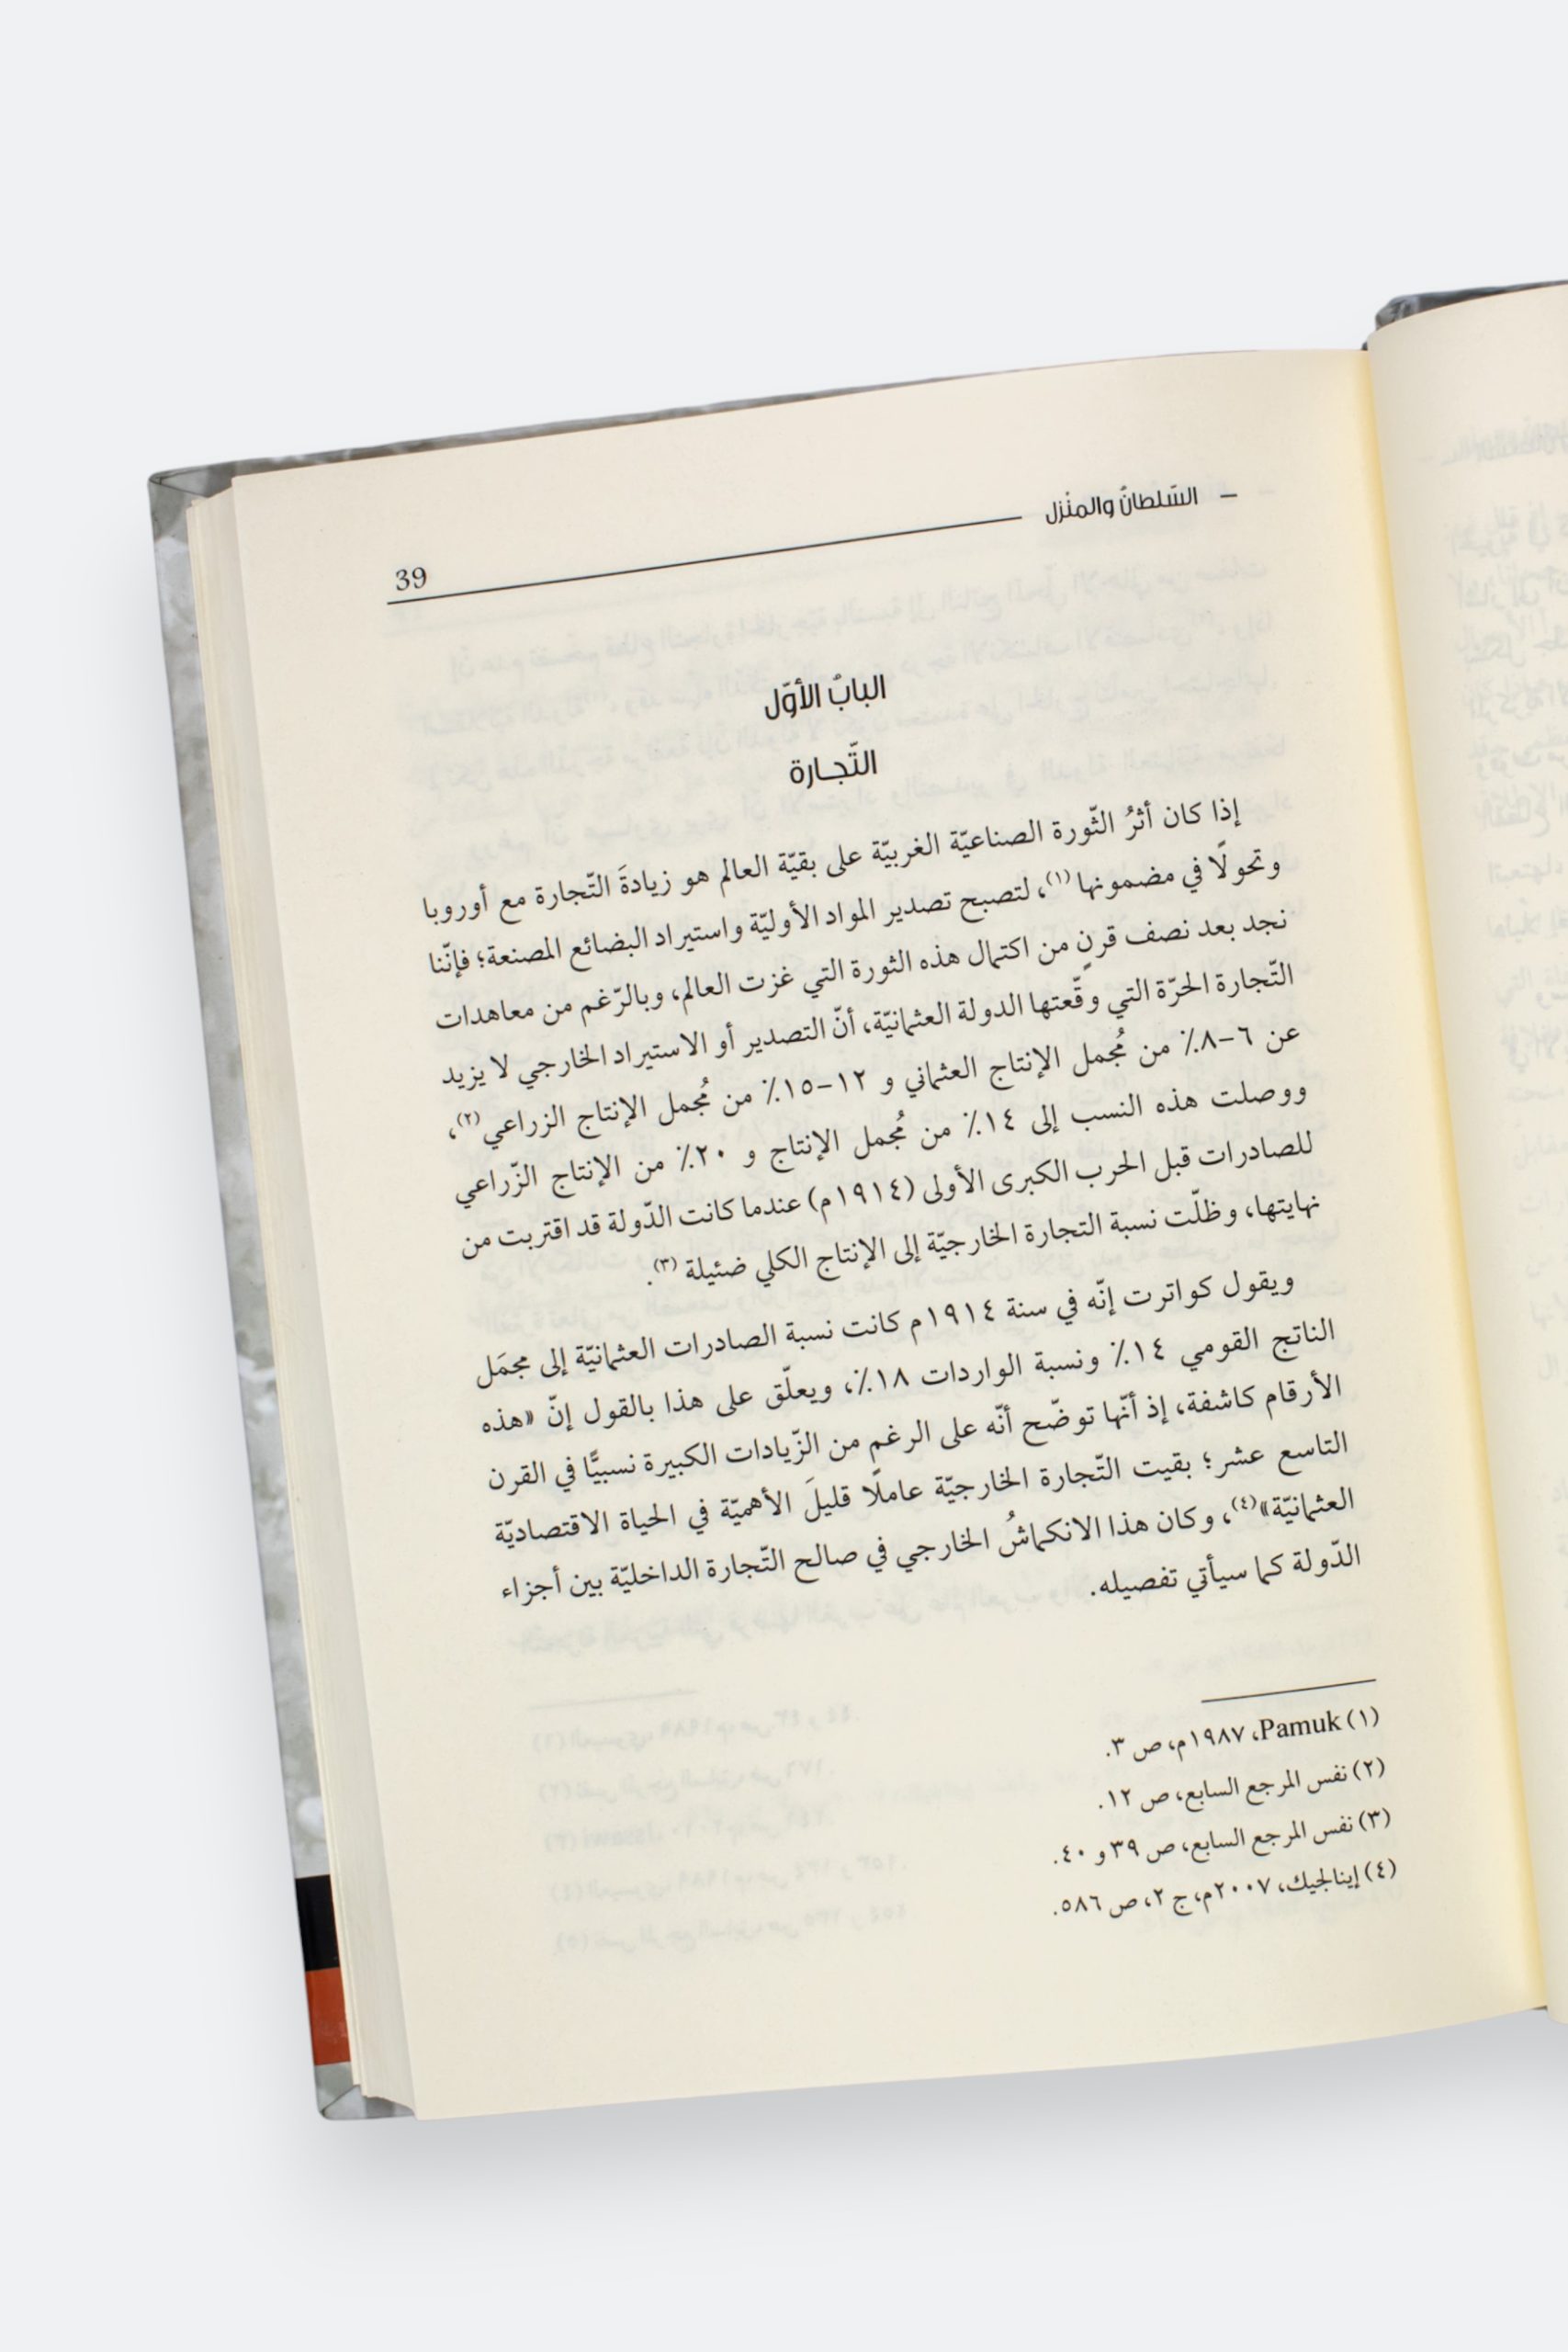 – السّلطانُ والمنْزل
39
البابُ الأوّل
التّجارة
إذا كان أثرُ الثّورة الصناعيّة الغربيّة على بقيّة العالم هو زيادةَ التّجارة مع أوروبا
وتحولًا في مضمونها (١)، لتصبح تصدير المواد الأوليّة واستيراد البضائع المصنعة؛ فإنّنا
نجد بعد نصف قرنٍ من اكتمال هذه الثورة التي غزت العالم، وبالرّغم من معاهدات
التّجارة الحرّة التي وقّعتها الدولة العثمانيّة، أنّ التصدير أو الاستيراد الخارجي لا يزيد
عن ٦-٨٪ من مُجمل الإنتاج العثماني و ١٢-١٥٪ من مُجمل الإنتاج الزراعي (٢)،
ووصلت هذه النسب إلى ١٤٪ من مُجمل الإنتاج و ٢٠٪ من الإنتاج الزّراعي
للصادرات قبل الحرب الكبرى الأولى (١٩١٤م) عندما كانت الدّولة قد اقتربت من
نهايتها، وظلّت نسبة التجارة الخارجيّة إلى الإنتاج الكلي ضئيلة (٣).
ويقول كواترت إنّه في سنة ١٩١٤م كانت نسبة الصادرات العثمانيّة إلى مجمَل
الناتج القومي ١٤٪ ونسبة الواردات ١٨٪، ويعلّق على هذا بالقول إنّ «هذه
الأرقام كاشفة، إذ أنّها توضّح أنّه على الرغم من الزّيادات الكبيرة نسبيًّا في القرن
التاسع عشر؛ بقيت التّجارة الخارجيّة عاملًا قليلَ الأهميّة في الحياة الاقتصاديّة
العثمانيّة» (٤)، وكان هذا الانكماشُ الخارجي في صالح التّجارة الداخليّة بين أجزاء
الدّولة كما سيأتي تفصيله.
(١) Pamuk، ١٩٨٧م، ص ٣.
(٢) نفس المرجع السابع، ص ١٢.
(٣) نفس المرجع السابع، ص ٣٩ و ٤٠.
(٤) إينالجيك، ٢٠٠٧م، ج ٢، ص ٥٨٦.